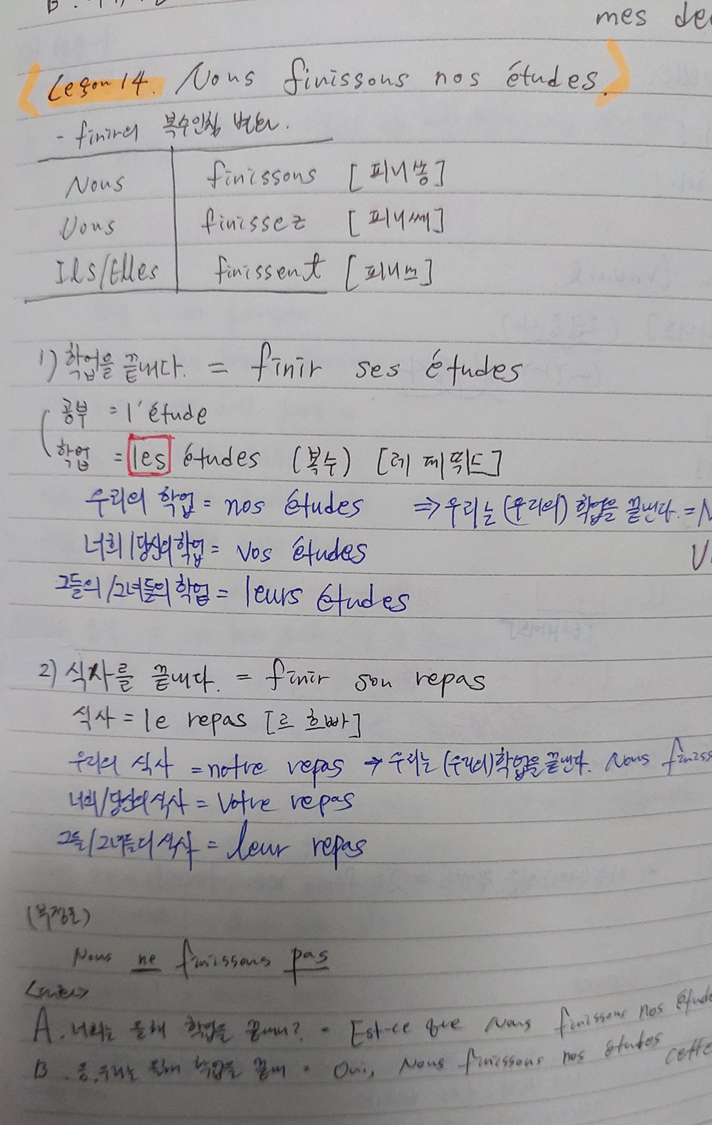 mes de
Leçon 14. Nous finissons nos études.
- finir의 복수인칭 변화.
Nous finissons [피니쏭]
Vous finissez [피니쎄]
Ils/Elles finissent [피니쓰]
1) 학업을 끝내다. = finir ses études
공부 = l'étude
학업 = les études (복수) [레 제뛰드]
우리의 학업 = nos études ⇒ 우리는 (우리의) 학업을 끝낸다. = N
너희/당신의 학업 = vos études V
그들의/그녀들의 학업 = leurs études
2) 식사를 끝내다. = finir son repas
식사 = le repas [르 흐빠]
우리의 식사 = notre repas → 우리는 (우리의) 학업을 끝낸다. Nous finiss
너희/당신의 식사 = votre repas
그들/그녀들의 식사 = leur repas
(부정문)
Nous ne finissons pas
A. 너희는 올해 학업을 끝내니? = Est-ce que nous finissons nos étude
B. 응, 우리는 올해 학업을 끝내 = Oui, nous finissons nos études cette